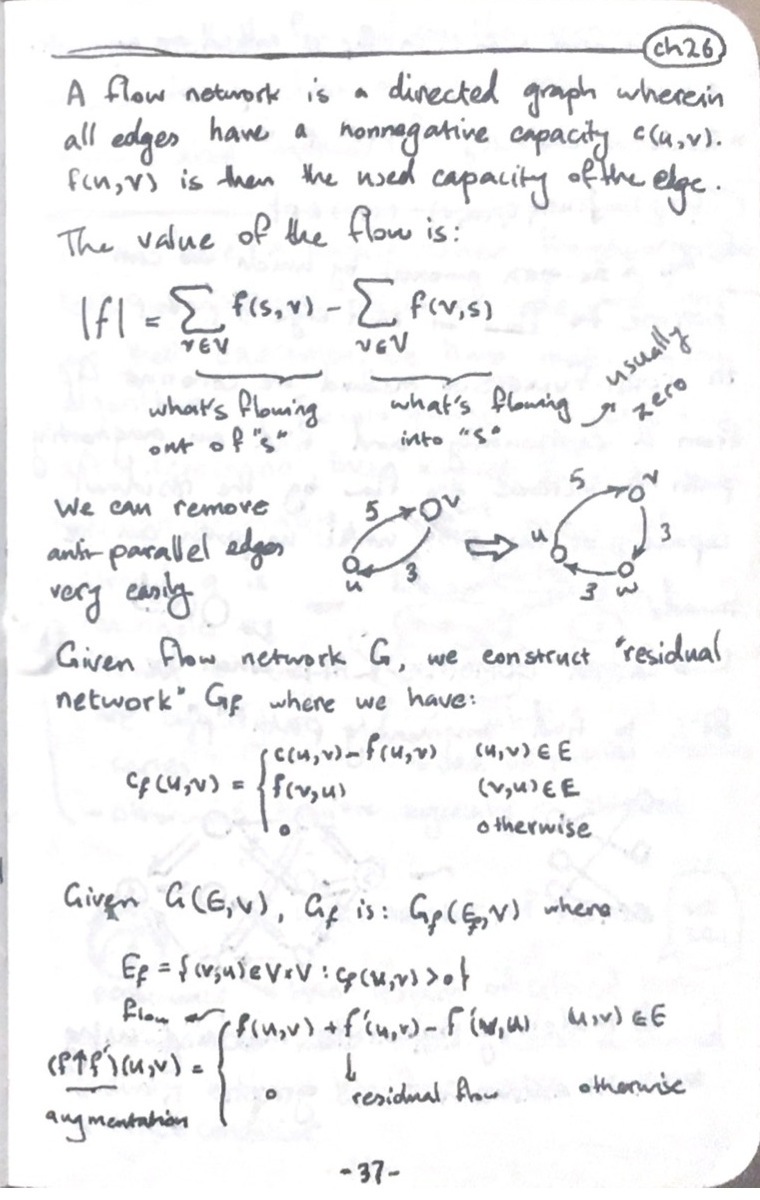 ch26
A flow network is a directed graph wherein
all edges have a nonnegative capacity c(u,v).
f(u,v) is then the used capacity of the edge.
The value of the flow is:
|f| = ∑ f(s,v) - ∑ f(v,s)
v∈V v∈V
usually
zero
what's flowing what's flowing
out of "s" into "s"
We can remove
anti-parallel edges
very easily
5 v u 3
⇒
5 v u 3 3 w
Given flow network G, we construct "residual
network" Gf where we have:
cf(u,v) = { c(u,v) - f(u,v) (u,v)∈E
f(v,u) (v,u)∈E
0 otherwise
Given G(E,V), Gf is: Gf(Ef,V) where
Ef = {(v,u)∈V×V : cf(u,v) > 0}
flow
(f↑f')(u,v) = { f(u,v) + f'(u,v) - f'(v,u) (u,v)∈E
0 otherwise
residual flow
augmentation
-37-